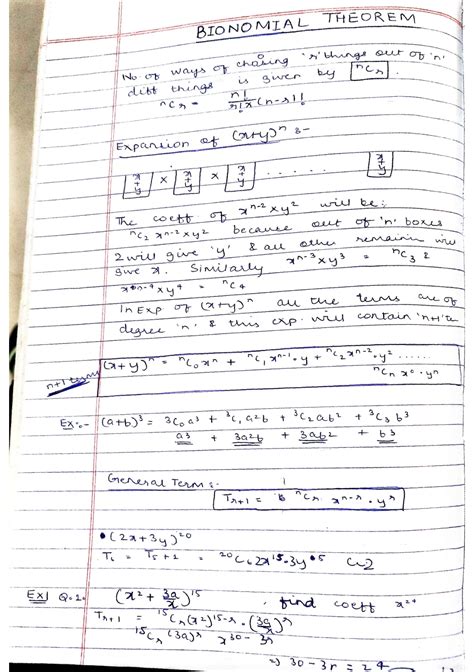 BIONOMIAL THEOREM
No of ways of chosing 'r' things out of 'n'
diff things is given by nCr.
nCr = n!/r!×(n-r)!
Expansion of (x+y)^n :-
[x+y] × [x+y] × [x+y] ...... [x+y]
The coeff of x^n-2 × y^2 will be:
nC2 x^n-2 × y^2 because out of 'n' boxes
2 will give 'y' & all other remainin will
give x. Similarly x^n-3 × y^3 = nC3 &
x^n-4 × y^4 = nC4
In Exp of (x+y)^n all the terms are of
degree 'n' & this exp. will contain 'n+1' te
(x+y)^n = nC0 x^n + nC1 x^n-1 · y + nC2 x^n-2 · y^2 ......
n+1 terms
nCn x^0 · y^n
Ex:- (a+b)^3 = 3C0 a^3 + 3C1 a^2b + 3C2 ab^2 + 3C3 b^3
a^3 + 3a^2b + 3ab^2 + b^3
General Term :-
Tr+1 = nCr x^n-r · y^r
• (2x+3y)^20
= T5+1 = 20C5 2x^15 · 3y^5
Ex Q:1. (x^2 + 3a/x)^15 find coeff x^24
Tr+1 = 15Cr (x^2)^15-r · (3a/x)^r
15Cr (3a)^r x^30-3r
⇒ 30-3r = 24